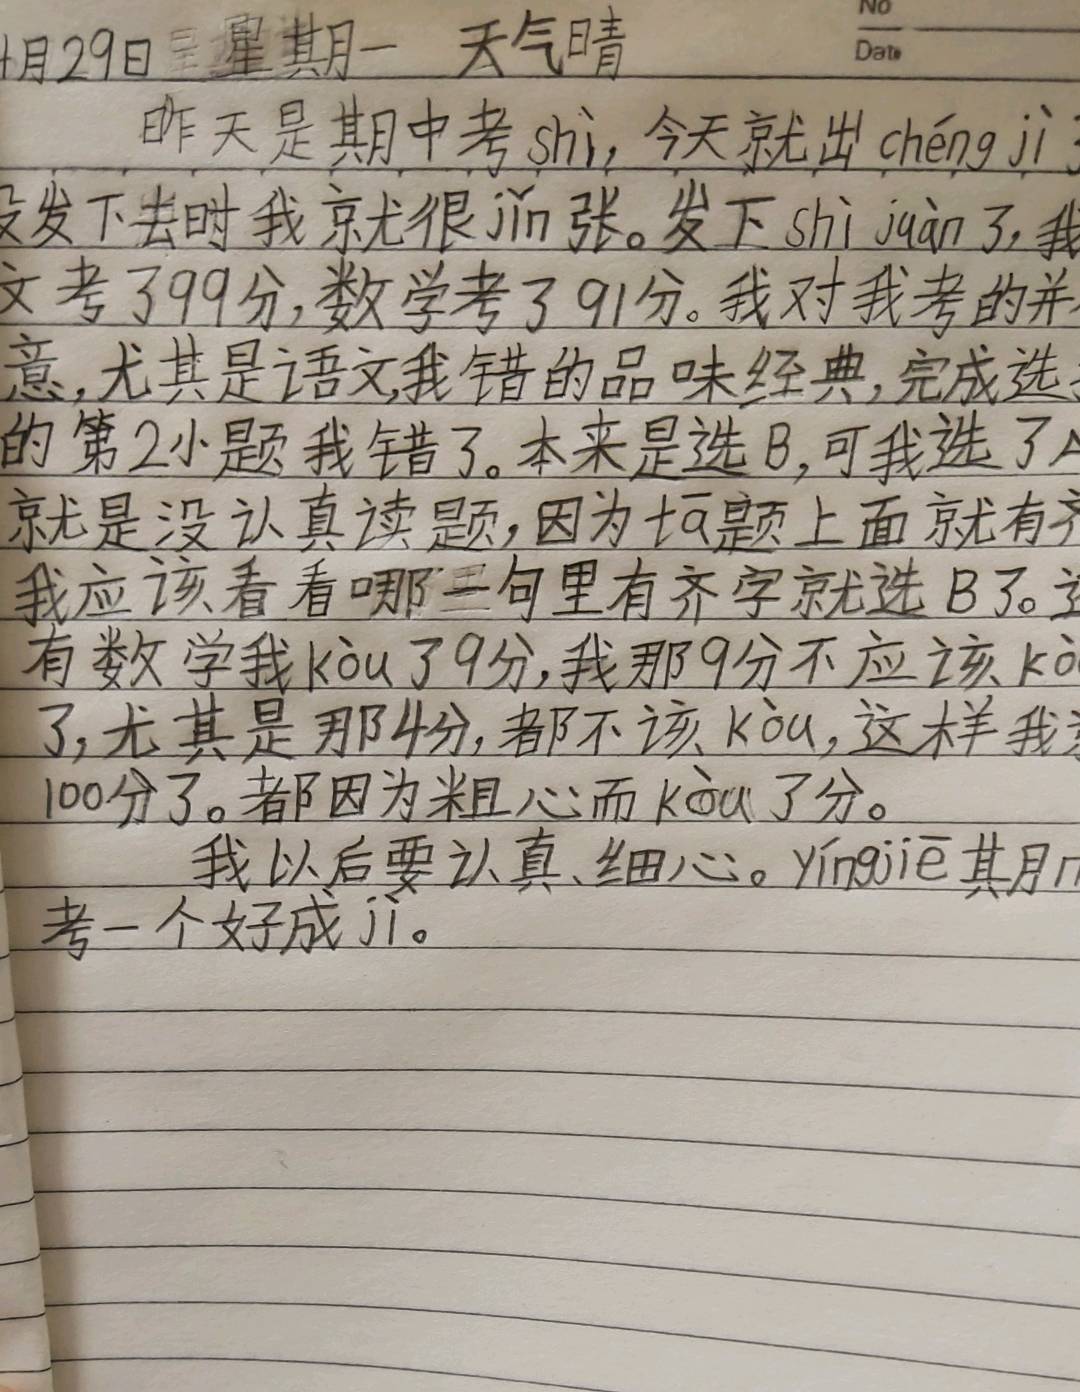 No
Date
4月29日 星期一 天气晴
昨天是期中考shì,今天就出chéngjì了
没发下去时我就很jǐn张。发下shìjuàn了,我
文考了99分,数学考了91分。我对我考的并
意,尤其是语文,我错的品味经典,完成选
的第2小题我错了。本来是选B,可我选了A
就是没认真读题,因为tā题上面就有齐
我应该看看哪一句里有齐字就选B了。还
有数学我kòu了9分,我那9分不应该kòu
了,尤其是那4分,都不该kòu,这样我
100分了。都因为粗心而kòu了分。
我以后要认真、细心。yíngjiē期
考一个好成jì。